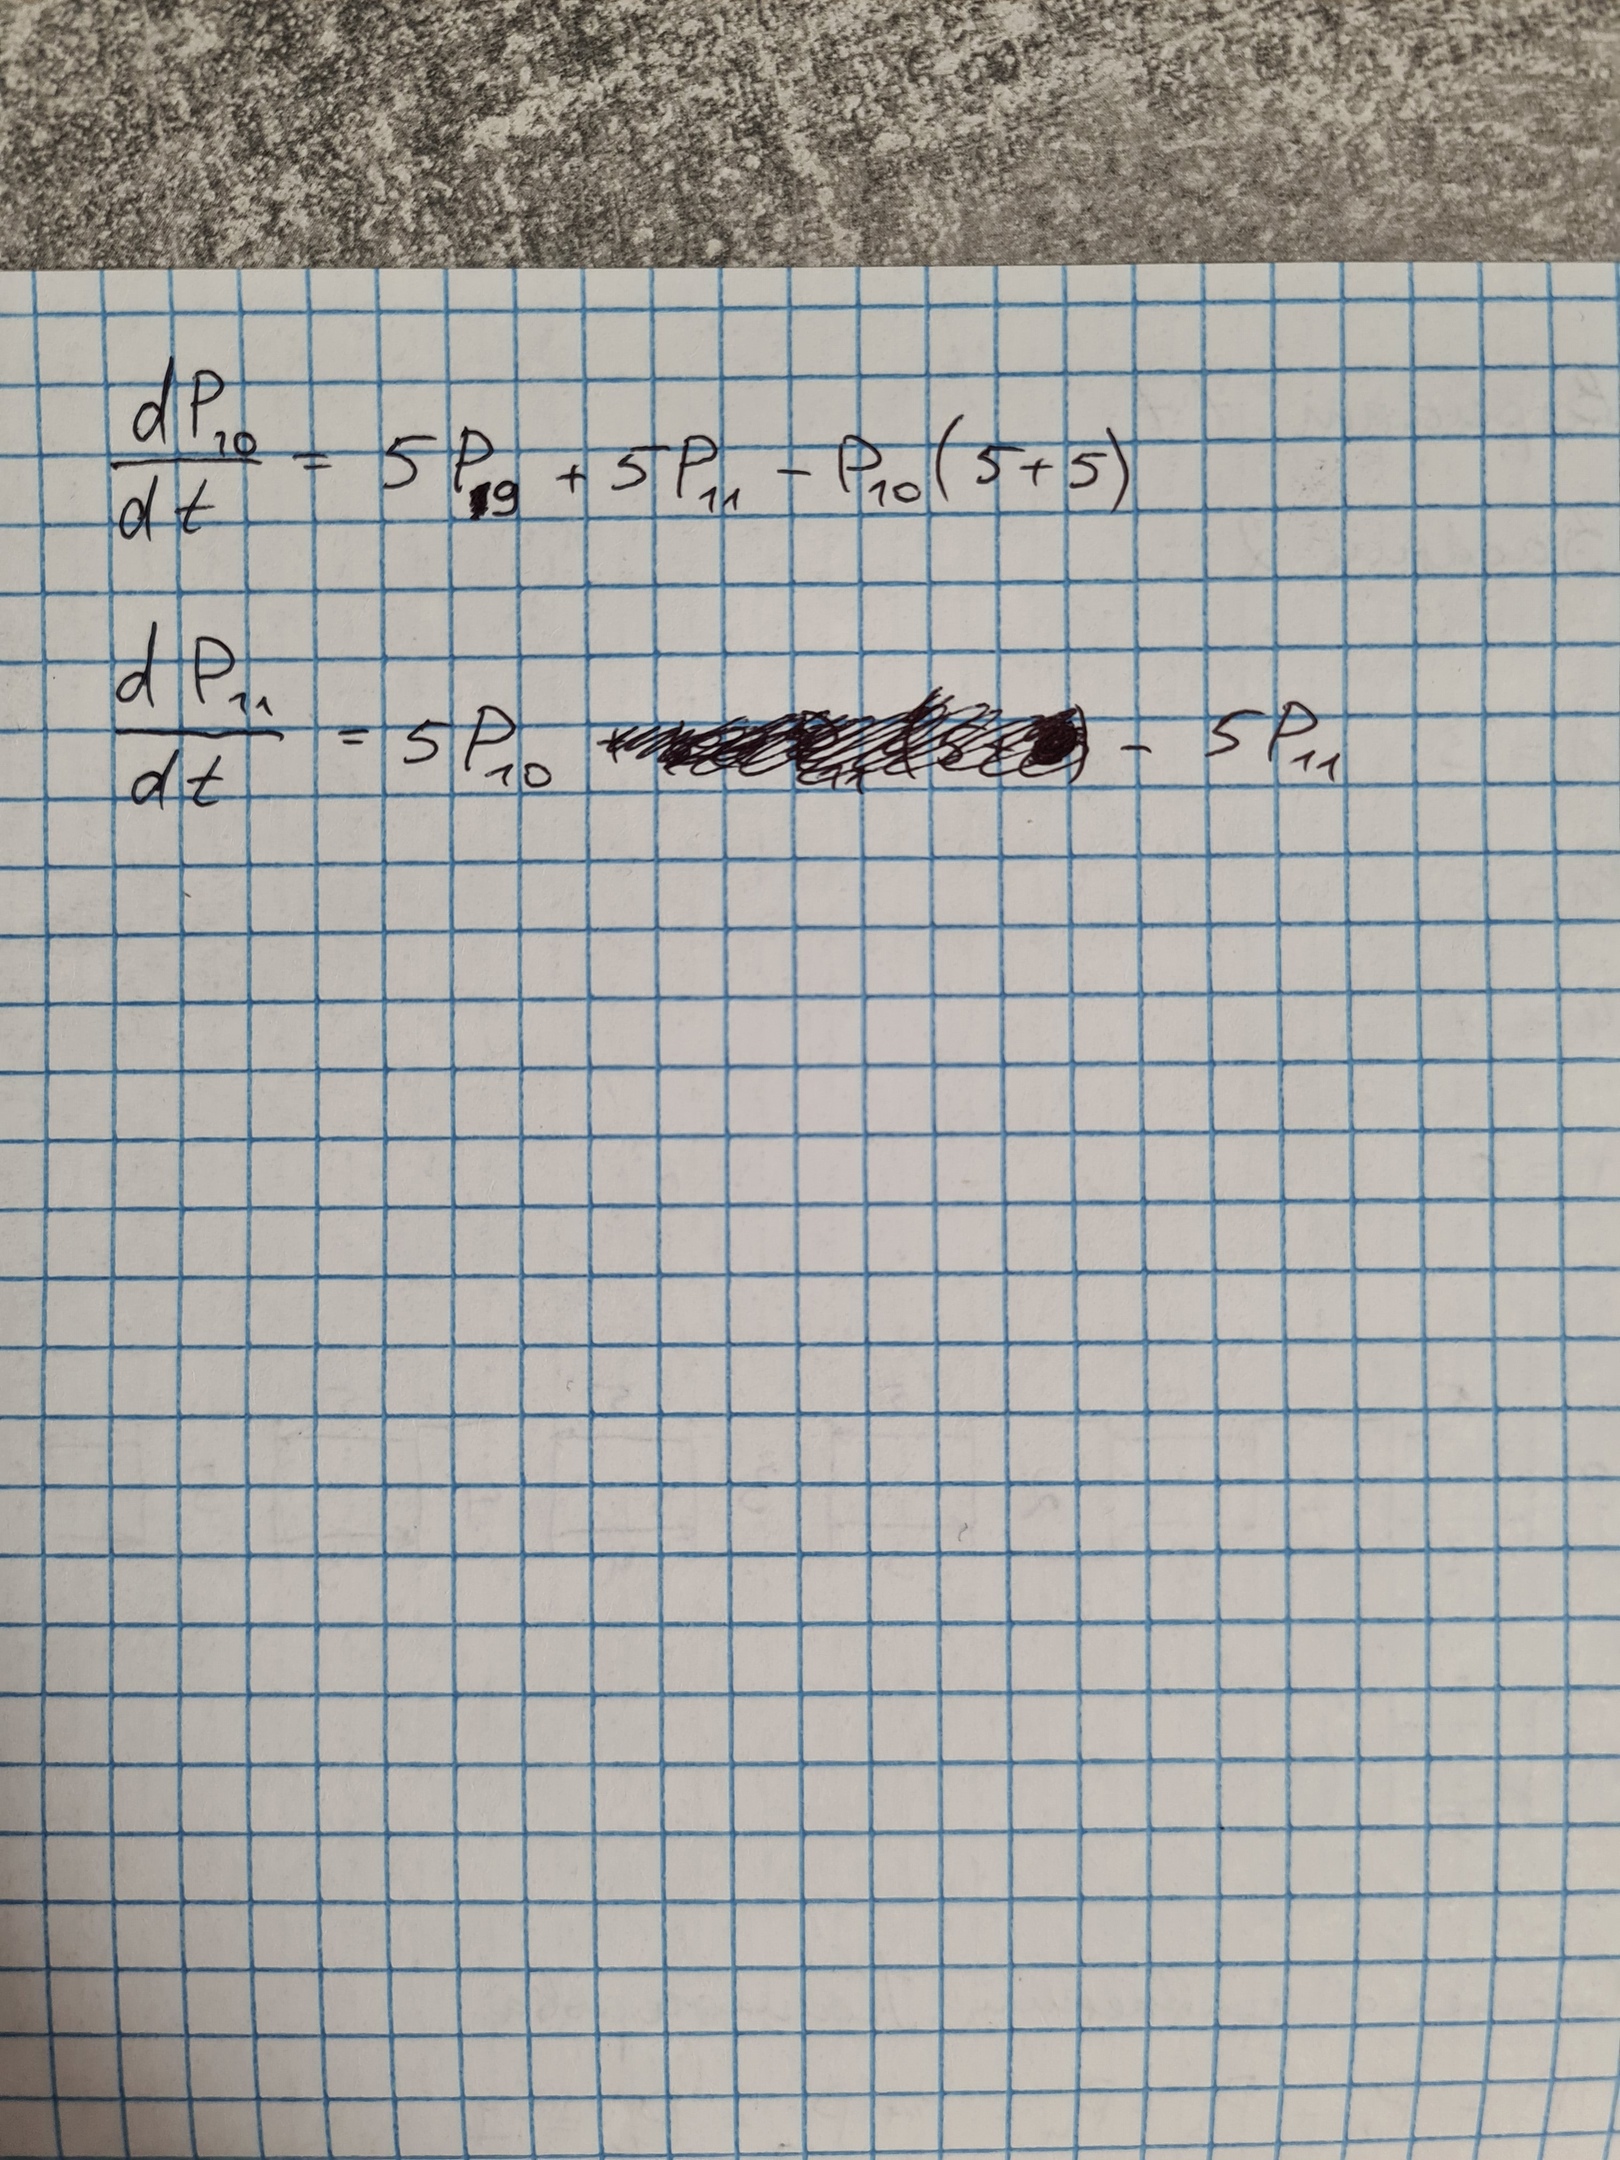 dP₁₀/dt = 5P₉ + 5P₁₁ - P₁₀(5+5)
dP₁₁/dt = 5P₁₀ - 5P₁₁